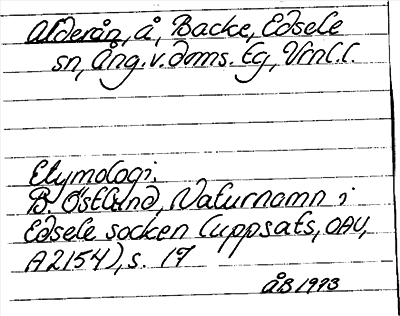 Alderån, å, Backe, Edsele
sn, Ång. v. doms. Eg, Vrnl.l.
Etymologi:
B. Östlund, Naturnamn i
Edsele socken (uppsats, OAU,
A2154), s. 17
ÅB 1993